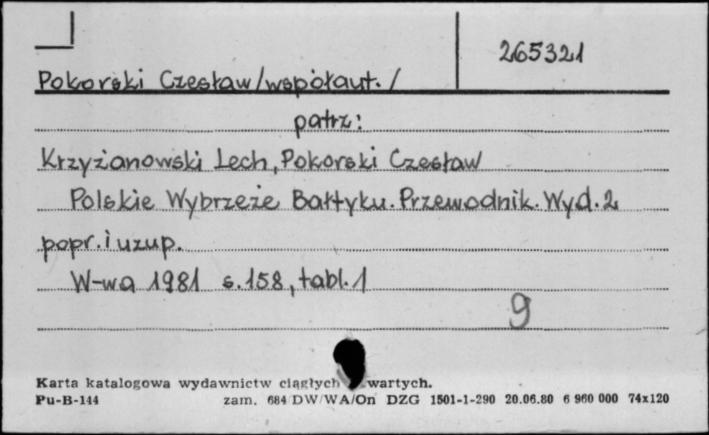 265321
Pokorski Czesław/współaut./
patrz:
Krzyżanowski Lech, Pokorski Czesław
Polskie Wybrzeże Bałtyku. Przewodnik. Wyd. 2
popr. i uzup.
W-wa 1981 s. 158, tabl. 1
9
Karta katalogowa wydawnictw ciągłych wartych.
Pu-B-144 zam. 684/DW/WA/On DZG 1501-1-290 20.06.80 6 960 000 74x120